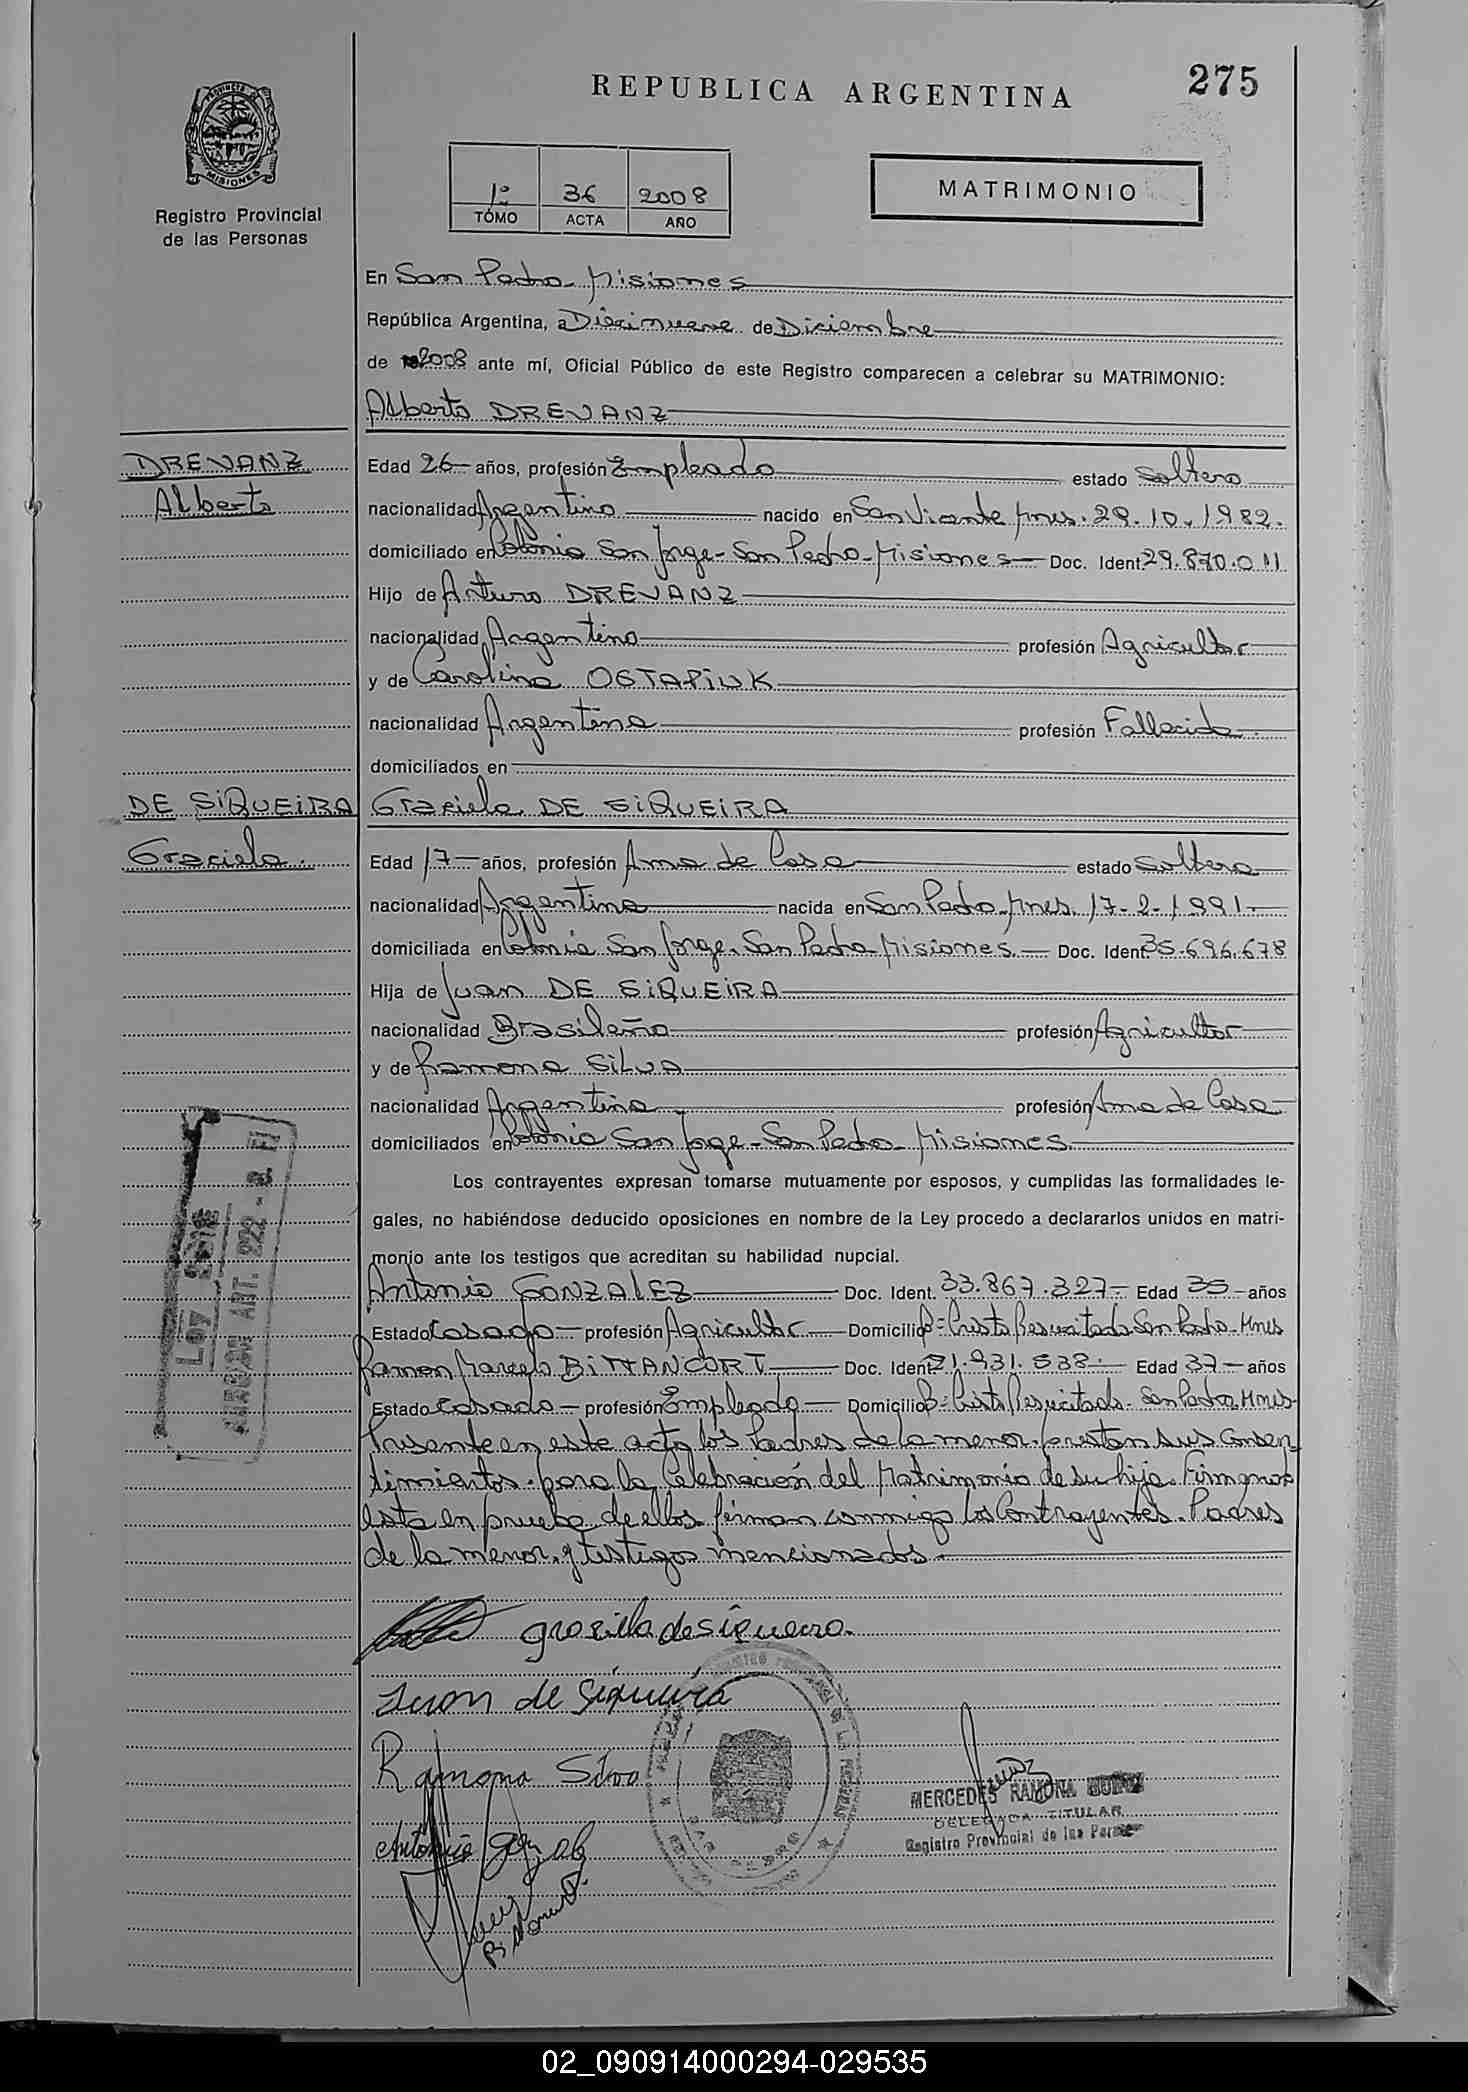 275
REPUBLICA ARGENTINA
PROVINCIA DE
MISIONES
Registro Provincial
de las Personas
1º 36 2008
TOMO ACTA AÑO
MATRIMONIO
En San Pedro - Misiones
República Argentina, a Diecinueve de Diciembre
de 2008 ante mí, Oficial Público de este Registro comparecen a celebrar su MATRIMONIO:
Alberto DREVANZ
DREVANZ
Alberto
Edad 26 años, profesión Empleado estado Soltero
nacionalidad Argentino nacido en San Vicente Mnes. 29.10.1982.
domiciliado en Colonia San Jorge - San Pedro - Misiones Doc. Ident. 29.870.011
Hijo de Arturo DREVANZ
nacionalidad Argentino profesión Agricultor
y de Carolina OSTAPIUK
nacionalidad Argentina profesión Fallecida
domiciliados en
DE SIQUEIRA
Graciela
Graciela DE SIQUEIRA
Edad 17 años, profesión Ama de Casa estado Soltera
nacionalidad Argentina nacida en San Pedro Mnes. 17-2-1991
domiciliada en Colonia San Jorge - San Pedro - Misiones. Doc. Ident. 35.696.678
Hija de Juan DE SIQUEIRA
nacionalidad Brasileño profesión Agricultor
y de Ramona SILVA
nacionalidad Argentina profesión Ama de Casa
domiciliados en Colonia San Jorge - San Pedro - Misiones.
Los contrayentes expresan tomarse mutuamente por esposos, y cumplidas las formalidades le-
gales, no habiéndose deducido oposiciones en nombre de la Ley procedo a declararlos unidos en matri-
monio ante los testigos que acreditan su habilidad nupcial.
Antonio GONZALEZ Doc. Ident. 33.867.327 Edad 35 años
Estado Casado profesión Agricultor Domicilio Bº Cristo Resucitado San Pedro - Mnes
Ramon Marcelo BITTANCORT Doc. Ident. 21.931.538. Edad 37 años
Estado Casado profesión Empleado Domicilio Bº Cristo Resucitado - San Pedro Mnes
Presente en este acto los Padres de la menor. prestan sus Consen-
timientos. para la Celebración del Matrimonio de su hija. Firmando
esta en prueba de ellos firman conmigo los Contrayentes. Padres
de la menor. y testigos mencionados.
Ley
ART. 222
graciela de siqueira.
Juan de Siqueira
Ramona Silva
Antonio
MERCEDES RAMONA
DELEGADA TITULAR
Registro Provincial de las
02_090914000294-029535